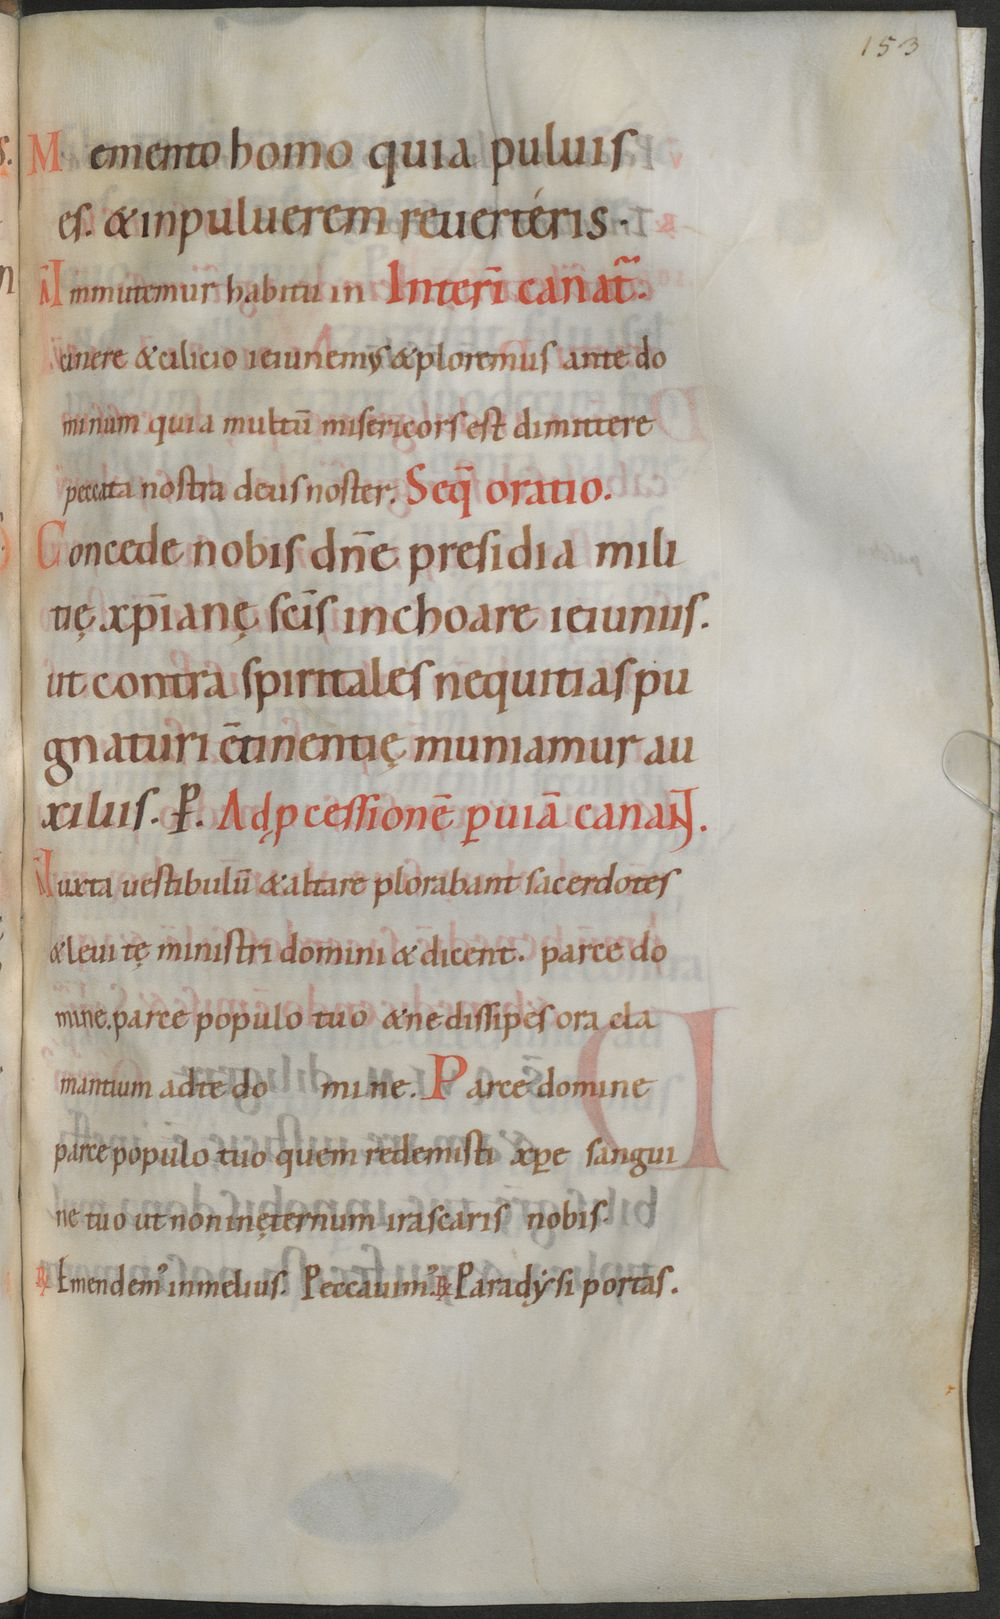 153
Memento homo quia puluis
es. & inpuluerem reuertéris.
A Inmutemur habitu in Interī cānat̄.
cinere & cilicio ieiunemus & ploremus ante do
minum quia multū misericors est dimittere
peccata nostra deus noster. Seq̄ oratio.
Concede nobis dn̄e presidia mili
tię xp̄ianę sc̄is inchoare ieiuniis.
ut contra spiritales nequitias pu
gnaturi c̄tinentię muniamur au
xiliis. P̱. Ad ꝓcessionē ꝑ uiā canaN̄.
A Iuxta uestibulū & altare plorabant sacerdotes
& leuitę ministri domini & dicent. parce do
mine. parce populo tuo & ne dissipes ora cla
mantium ad te domine. Parce domine
parce populo tuo quem redemisti xp̄e sangui
ne tuo ut non inęternum irascaris nobis.
℟ Emendem' inmelius. Peccauim'. ℟ Paradysi portas.